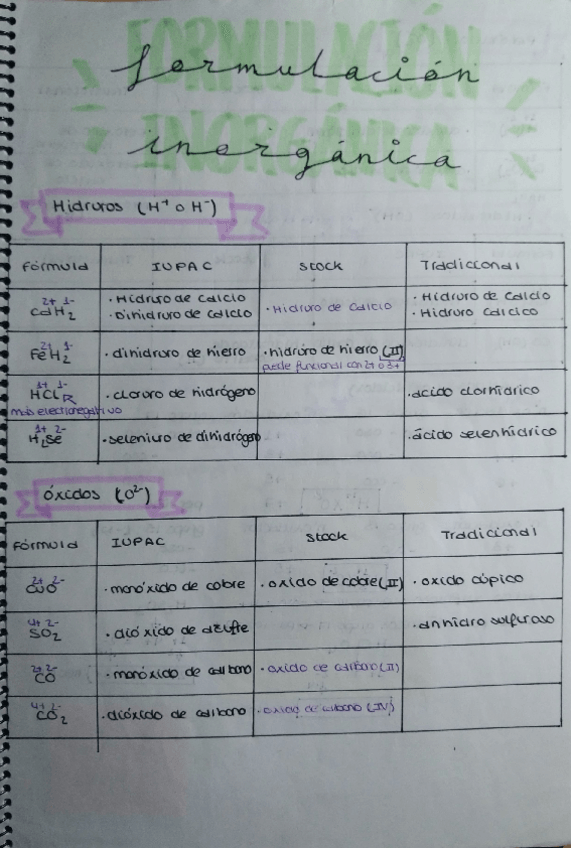 FORMULACIÓN
formulación
INORGÁNICA
inorgánica
Hidruros (H⁺ o H⁻)
Fórmula IUPAC Stock Tradiccional
2+ 1-
CaH₂ · Hidruro de calcio · Dihidruro de calcio · Hidruro de calcio · Hidruro de calcio · Hidruro cálcico
2+ 1-
FeH₂ · dihidruro de hierro · hidruro de hierro (II)
puede funcionar con 2+ o 3+
1+ 1-
HCl · cloruro de hidrógeno · ácido clorhídrico
más electronegativo
1+ 2-
H₂Se · seleniuro de dihidrógeno · ácido selenhídrico
óxidos (O²⁻)
Fórmula IUPAC Stock Tradiccional
2+ 2-
CuO · monóxido de cobre · oxido de cobre (II) · oxido cúpico
4+ 2-
SO₂ · dióxido de azufre · anhidro sulfuroso
2+ 2-
CO · monóxido de carbono · oxido de carbono (II)
4+ 2-
CO₂ · dióxido de carbono · oxido de carbono (IV)